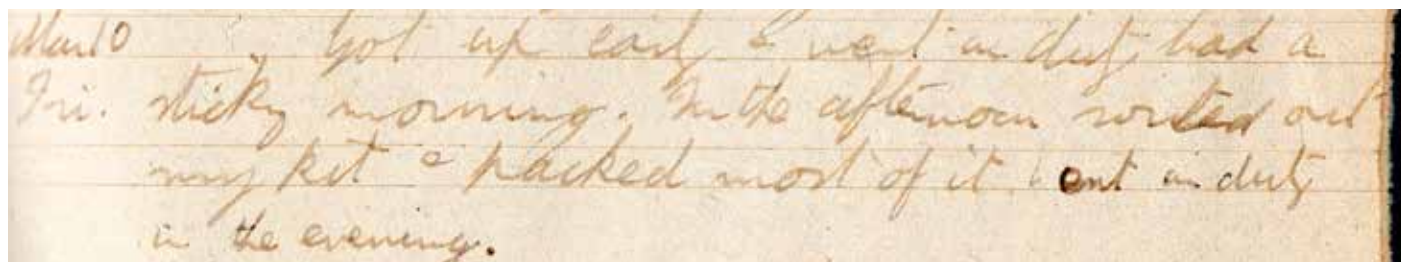 Mar 10 Got up early & went on duty had a
Fri. sticky morning. In the afternoon sorted out
my kit & packed most of it. Went on duty
in the evening.